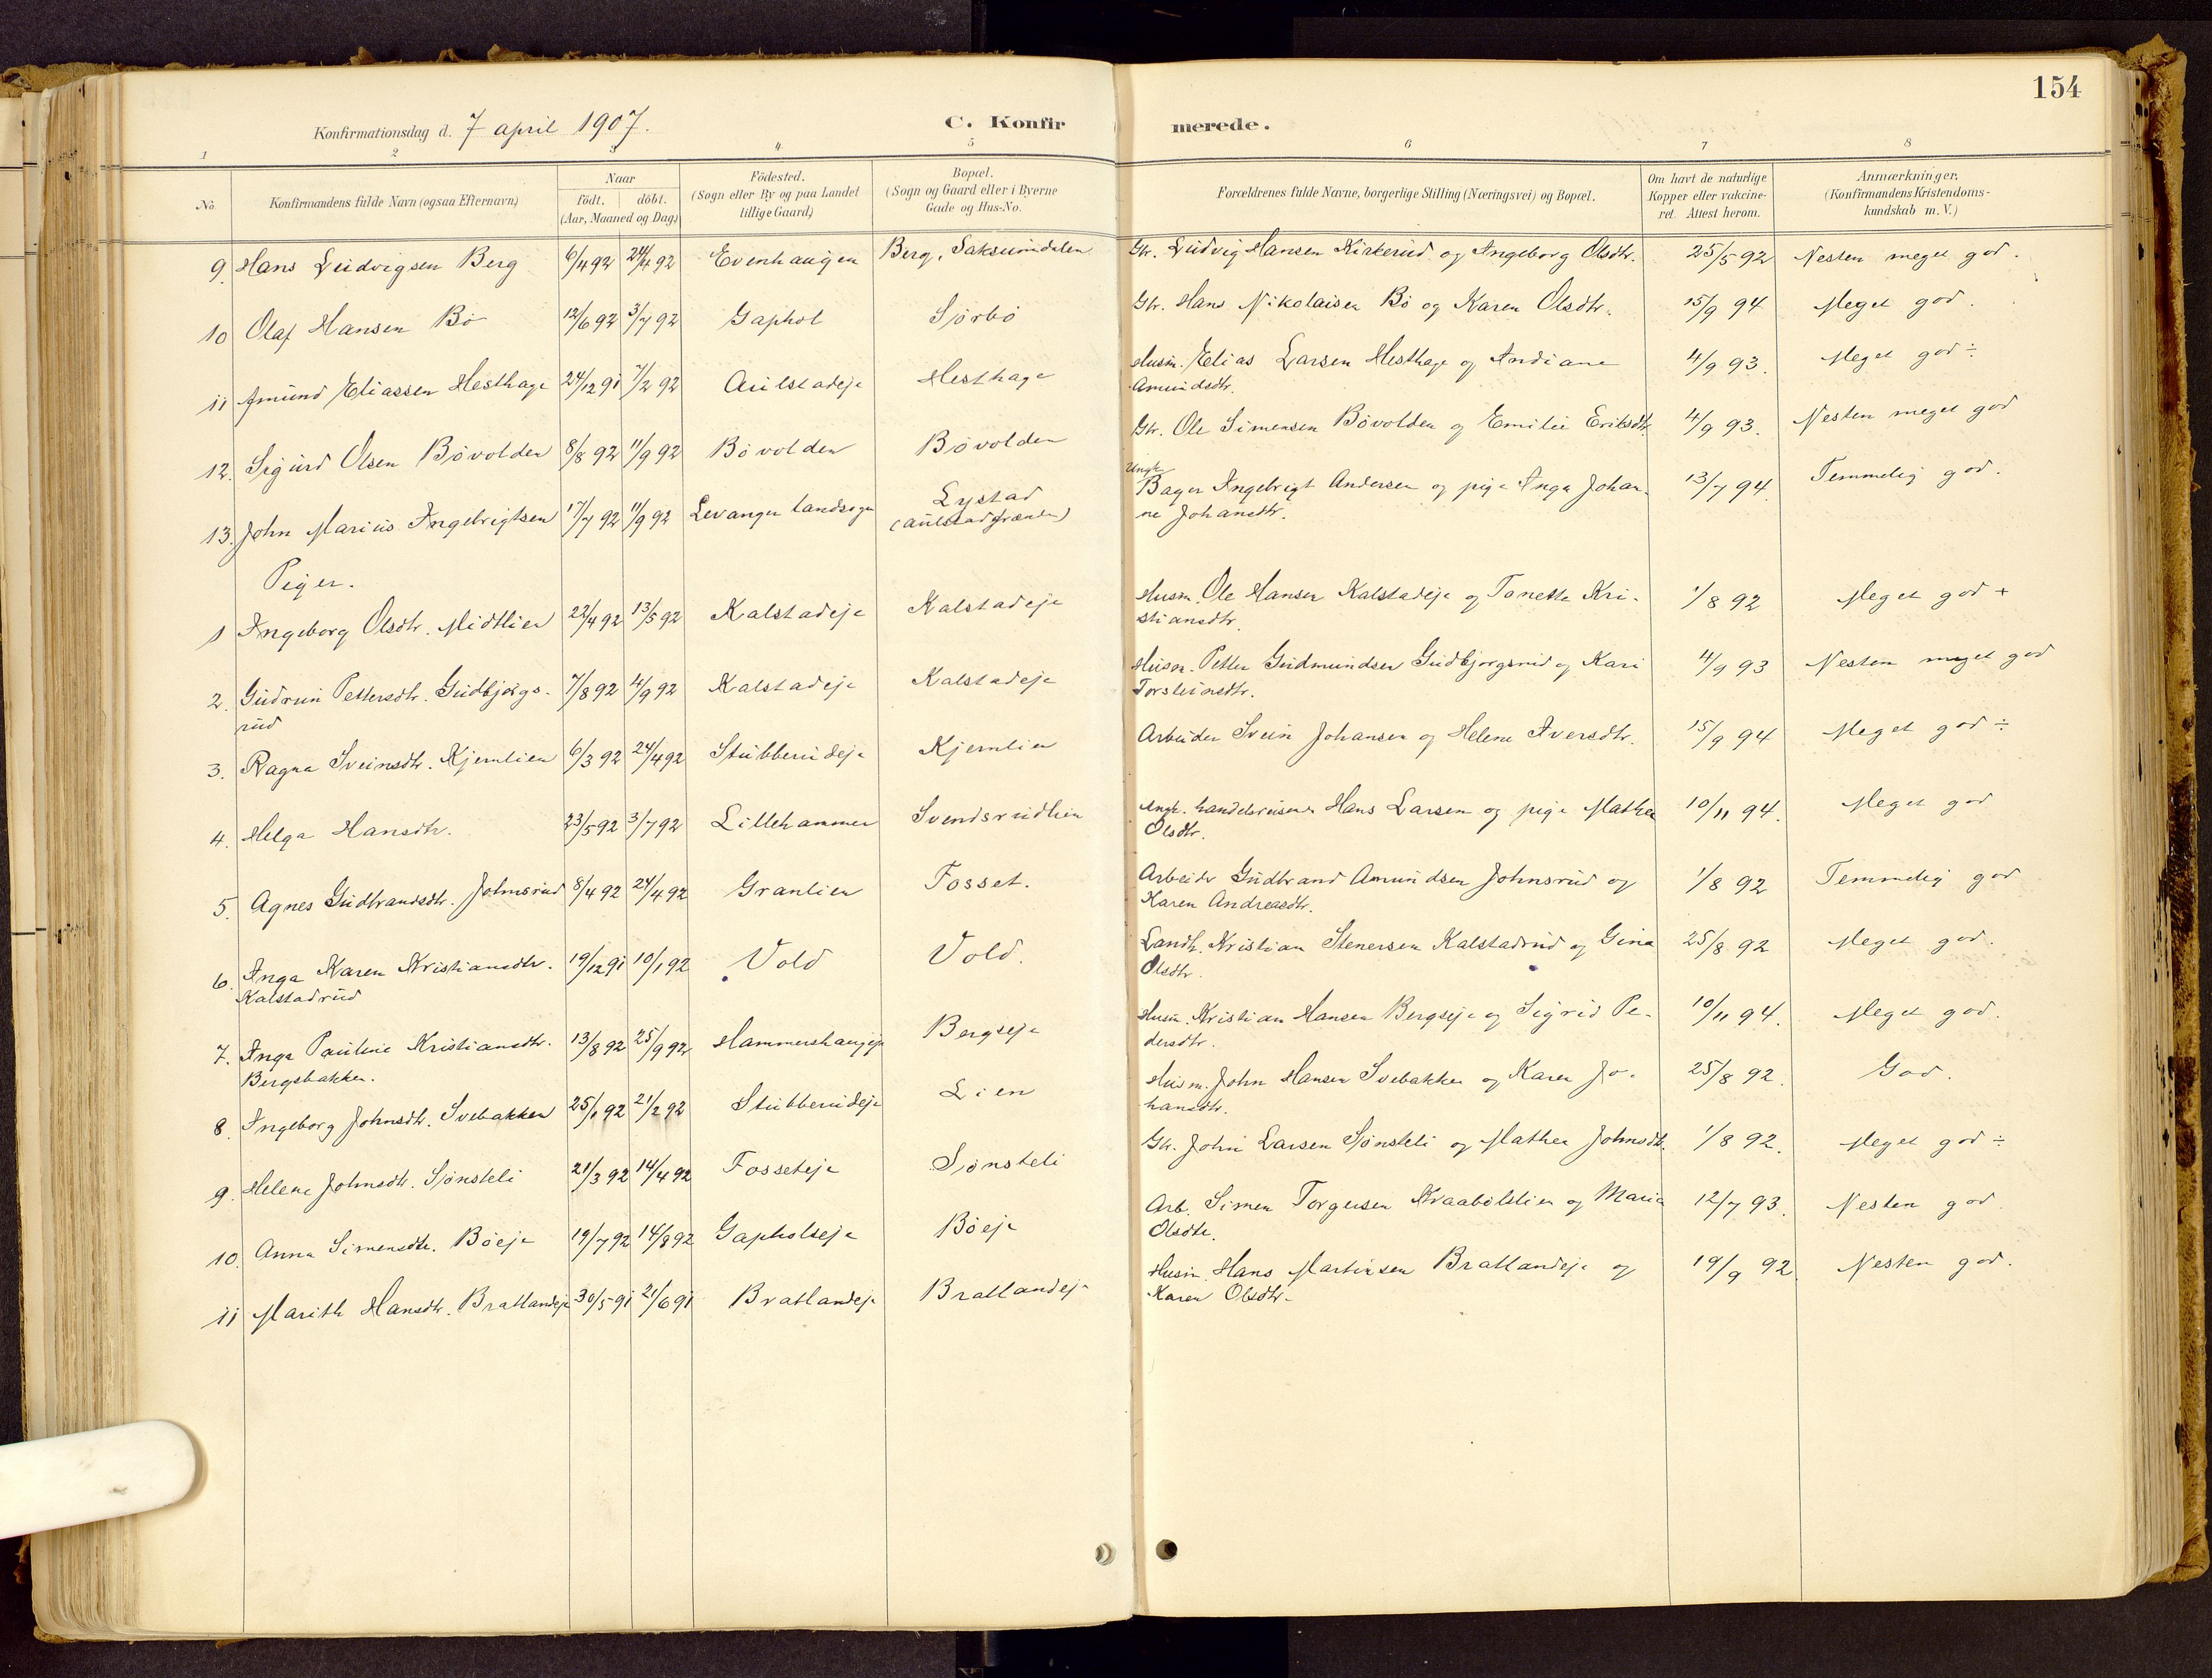 154
Konfirmationsdag d. 7 april 1907.
C. Konfirmerede.
1 2 3 4 5 6 7 8
No.
Konfirmandens fulde Navn (ogsaa Efternavn)
Naar
födt. döbt.
(Aar, Maaned og Dag)
Födested.
(Sogn eller By og paa Landet
tillige Gaard)
Bopæl.
(Sogn og Gaard eller i Byerne
Gade og Hus-No.
Forældrenes fulde Navne, borgerlige Stilling (Næringsvei) og Bopæl.
Om havt de naturlige
Kopper eller vakcine-
ret. Attest herom.
Anmærkninger.
(Konfirmandens Kristendoms-
kundskab m. V.)
9. Hans Ludvigsen Berg 6/4 92 24/4 92 Evenhaugen Berg, Saksumdalen Gbr. Ludvig Hansen Kirkerud og Ingeborg Olsdtr. 25/5 92 Nesten meget god.
10 Olaf Hansen Bø 12/6 92 3/7 92 Gaphol Sørbø Gbr. Hans Nikolaisen Bø og Karen Olsdtr. 15/9 94 Meget god.
11 Amund Eliassen Hesthage 24/12 91 7/2 92 Aulstadeje Hesthage Husm. Elias Larsen Hesthage og Andiane
Amundsdtr. 4/9 93. Meget god ÷
12. Sigurd Olsen Bøvolden 8/8 92 11/9 92 Bøvolden Bøvolden Gbr. Ole Simensen Bøvolden og Emilie Eriksdtr. 4/9 93. Nesten meget god
13. John Marius Ingebrigtsen 17/7 92 11/9 92 Levanger landsogn Lystad
(Aulstadgrænden)
Ungk.
Bager Ingebrigt Andersen og pige Inga Johan-
ne Johansdtr. 13/7 94. Temmelig god.
Piger.
1 Ingeborg Olsdtr. Midtlien 22/4 92 13/5 92 Kalstadeje Kalstadeje Husm. Ole Hansen Kalstadeje og Tonette Kri-
stiansdtr. 1/8 92 Meget god +
2. Gudrun Pettersdtr. Gudbjørgs-
rud 7/8 92 4/9 92 Kalstadeje Kalstadeje Husm. Petter Gudmundsen Gudbjørgsrud og Kari
Torsteinsdtr. 4/9 93 Nesten meget god
3. Ragna Sveinsdtr. Kjernlien 6/3 92 24/4 92 Stubberudeje Kjernlien Arbeider Svein Johansen og Helene Iversdtr. 15/9 94 Meget god ÷
4. Helga Hansdtr. 23/5 92 3/7 92 Lillehammer Svendsrudlien Ungk. handelsreisende Hans Larsen og pige Mathea
Olsdtr. 10/11 94. Meget god
5. Agnes Gudbrandsdtr. Johnsrud 8/4 92 24/4 92 Granlien Fosset. Arbeider Gudbrand Amundsen Johnsrud og
Karen Andreasdtr. 1/8 92 Temmelig god
6. Inga Karen Kristiansdtr.
Kalstadrud 19/12 91 10/1 92 Vold Vold. Landh. Kristian Stenersen Kalstadrud og Gina
Olsdtr. 25/8 92 Meget god.
7. Inga Pauline Kristiansdtr.
Bergsbakken. 13/8 92 25/9 92 Hammershaugeje Bergseje Husm. Kristian Hansen Bergseje og Sigrid Pe-
dersdtr. 10/11 94. Meget god.
8. Ingeborg Johnsdtr. Svebakken 25/1 92 21/2 92 Stubberudeje Lien Husm. John Hansen Svebakken og Karen Jo-
hansdtr. 25/8 92. God.
9. Helene Johnsdtr. Sjønsteli 21/3 92 14/4 92 Fosseteje Sjønsteli Gbr. John Larsen Sjønsteli og Mathea Johnsdtr. 1/8 92. Meget god ÷
10. Anna Simensdtr. Bøeje 19/7 92 14/8 92 Gapholseje Bøeje Arb. Simen Torgersen Kraabølslien og Maria
Olsdtr. 12/7 93. Nesten god
11 Marith Hansdtr. Bratlandeje 30/5 91 21/6 91 Bratlandeje Bratlandeje Husm. Hans Martinsen Bratlandeje og
Karen Olsdtr. 19/9 92. Nesten god.